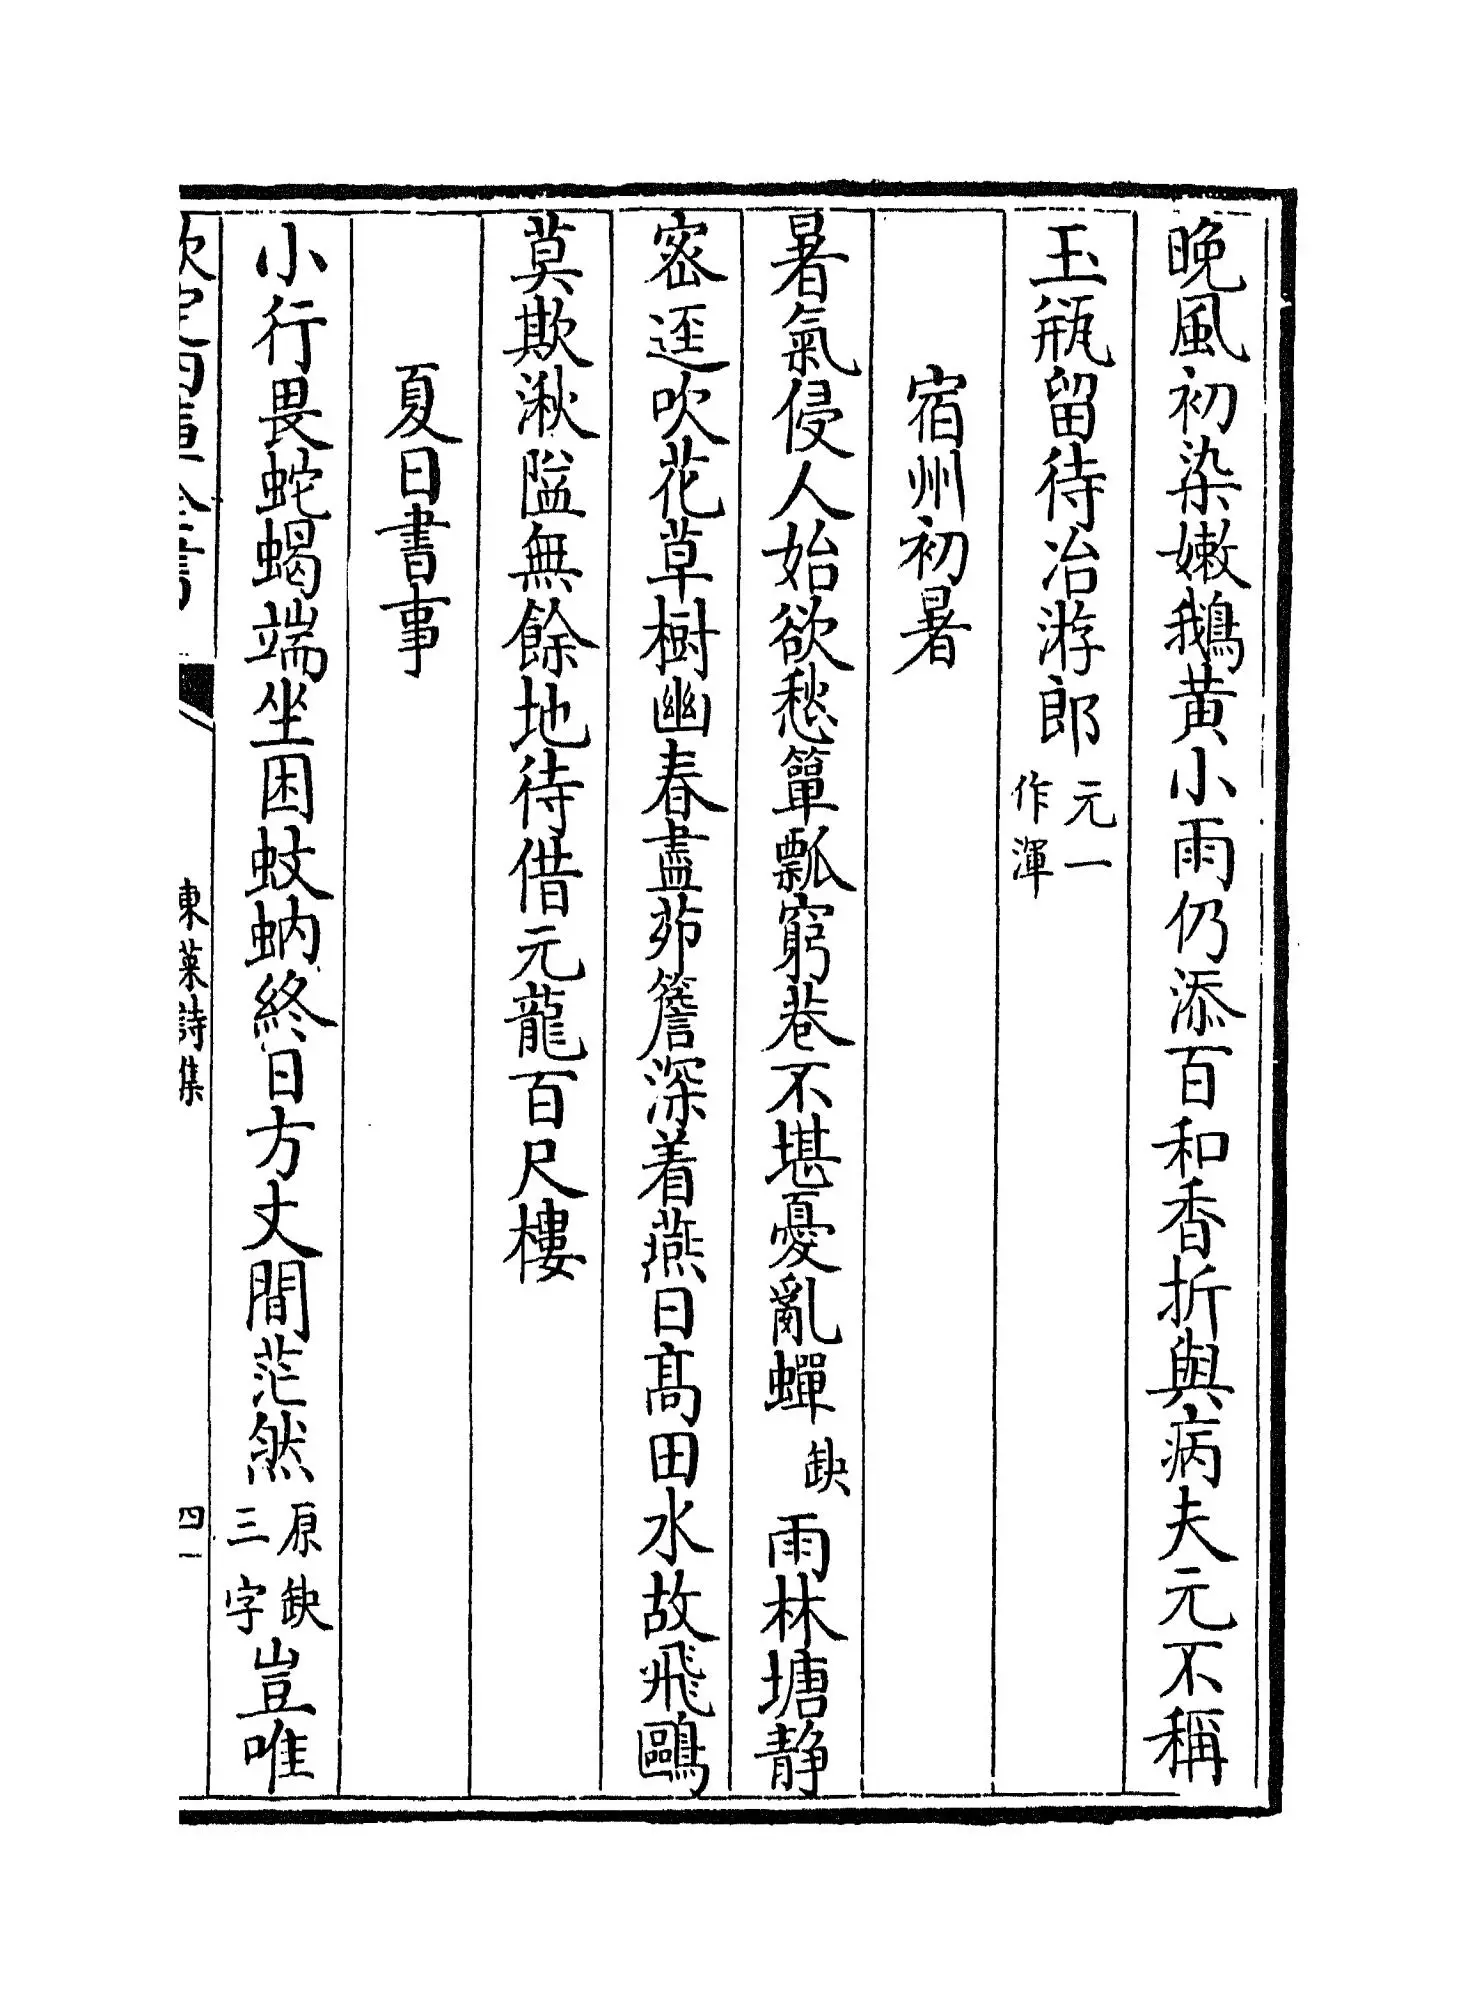 晚風初染嫩鵝黃小雨仍添百和香折與病夫元不稱
玉瓶留待冶游郎元一作渾
宿州初暑
暑氣侵人始欲愁簞瓢窮巷不堪憂亂蟬缺雨林塘靜
密逕吹花草樹幽春盡茆簷深着燕日髙田水故飛鷗
莫欺湫隘無餘地待借元龍百尺樓
夏日書事
小行畏蛇蝎端坐困蚊蚋終日方丈間茫然原缺三字豈唯
欽定四庫全書
東萊詩集
四